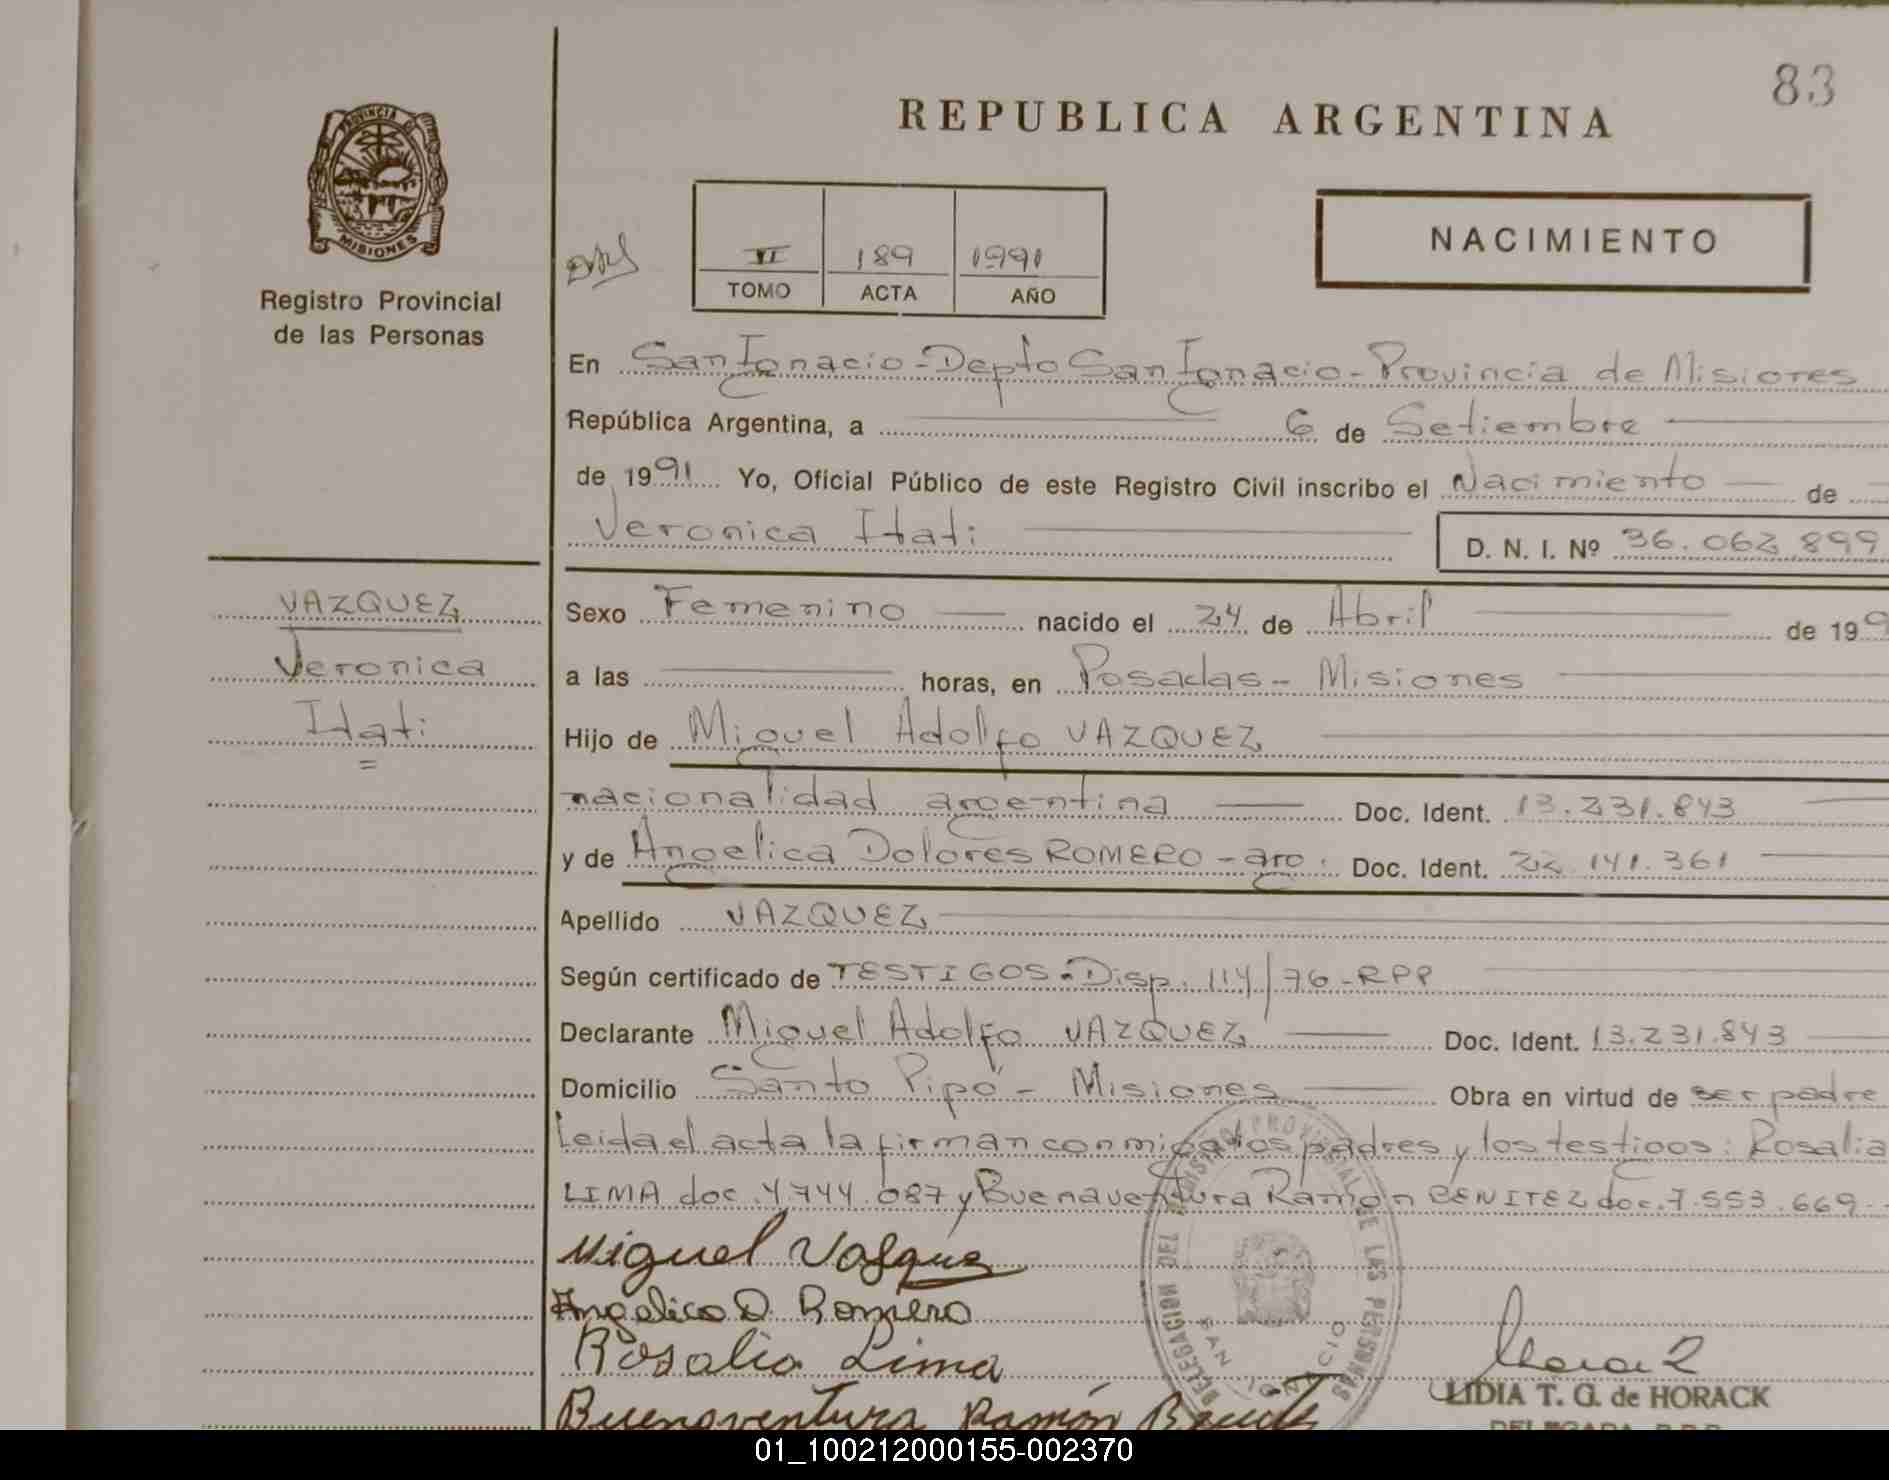 83
REPUBLICA ARGENTINA
PROVINCIA DE
MISIONES
Registro Provincial
de las Personas
II 189 1991
TOMO ACTA AÑO
NACIMIENTO
En San Ignacio - Depto San Ignacio - Provincia de Misiones
República Argentina, a 6 de Setiembre
de 1991 Yo, Oficial Público de este Registro Civil inscribo el Nacimiento de
Veronica Itati D. N. I. Nº 36.062.899
VAZQUEZ
Veronica
Itati
Sexo Femenino nacido el 24 de Abril de 199
a las horas, en Posadas - Misiones
Hijo de Miguel Adolfo VAZQUEZ
nacionalidad argentina Doc. Ident. 13.231.843
y de Angelica Dolores ROMERO - arg. Doc. Ident. 22.141.361
Apellido VAZQUEZ
Según certificado de TESTIGOS - Disp. 114/76 - RPP
Declarante Miguel Adolfo VAZQUEZ Doc. Ident. 13.231.843
Domicilio Santo Pipó - Misiones Obra en virtud de ser padre
Leida el acta la firman conmigo los padres y los testigos: Rosalia
LIMA doc. 4.744.087 y Buenaventura Ramón BENITEZ doc. 7.553.669 -
DELEGACION DEL REGISTRO PROVINCIAL DE LAS PERSONAS
SAN IGNACIO
Miguel Vasquez
Angelica D. Romero
Rosalia Lima
Buenaventura Ramón Benitez
LIDIA T. G. de HORACK
DELEGADA R.P.P.
01_100212000155-002370